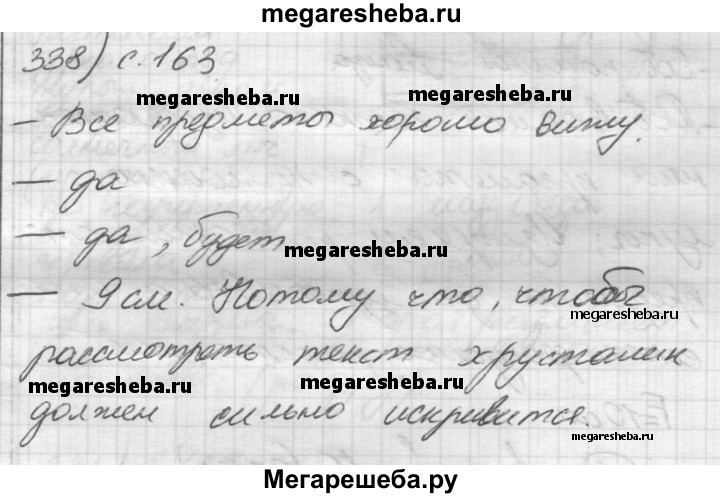 megaresheba.ru
338) с. 163
megaresheba.ru
megaresheba.ru
— Все предметы хорошо вижу.
— да
— да, будет
megaresheba.ru
— 9 см. Потому что, чтобы
megaresheba.ru
рассмотреть текст хрусталик
megaresheba.ru
megaresheba.ru
должен сильно искривится.
megaresheba.ru
Мегарешеба.ру